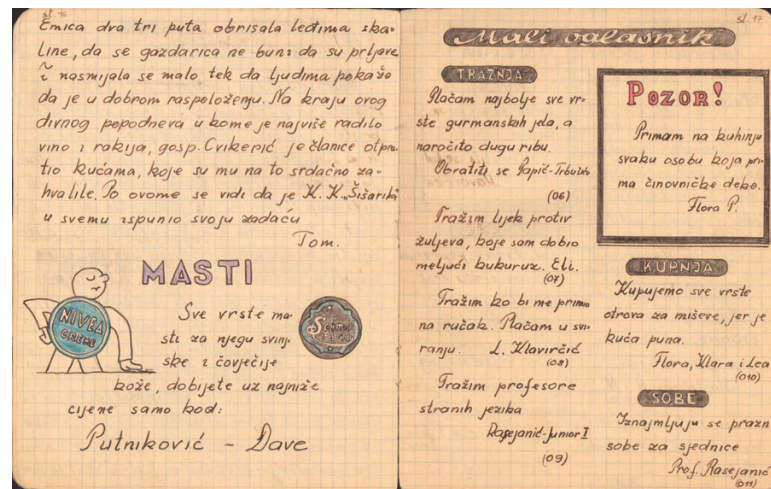 st. 16
Emica dva tri puta obrisala leđima ska-
line, da se gazdarica ne buni da su prljave
i nasmijala se malo tek da ljudima pokaže
da je u dobrom raspoloženju. Na kraju ovog
divnog popodneva u kome je najviše radilo
vino i rakija, gosp. Cvikerić je članice otpra-
tio kućama, koje su mu na to srdačno za-
hvalile. Po ovome se vidi da je K. K. „Šišarika"
u svemu ispunio svoju zadaću
Tom.
MASTI
NIVEA
CREME
Sve vrste ma-
sti za njegu svinj-
ske i čovječije
kože, dobijete uz najniže
cijene samo kod:
Putniković - Dave
st. 17
Mali oglasnik
TRAŽNJA
Plaćam najbolje sve vr-
ste gurmanskih jela, a
naročito dugu ribu.
Obratiti se Papić-
(06)
Tražim lijek protiv
žuljeva, koje sam dobio
meljući kukuruz. Eli.
(07)
Tražim ko bi me primio
na ručak. Plaćam u svi-
ranju. L. Klavirčić
(08)
Tražim profesore
stranih jezika
Rasejanić-junior I
(09)
POZOR!
Primam na kuhinju
svaku osobu koja pri-
ma činovničke deke.
Flora P.
KUPNJA
Kupujemo sve vrste
otrova za miševe, jer je
kuća puna.
Flora, Klara i Lea
(010)
SOBE
Iznajmljuju se prazn
sobe za sjednice
Prof. Rasejanić
(011)